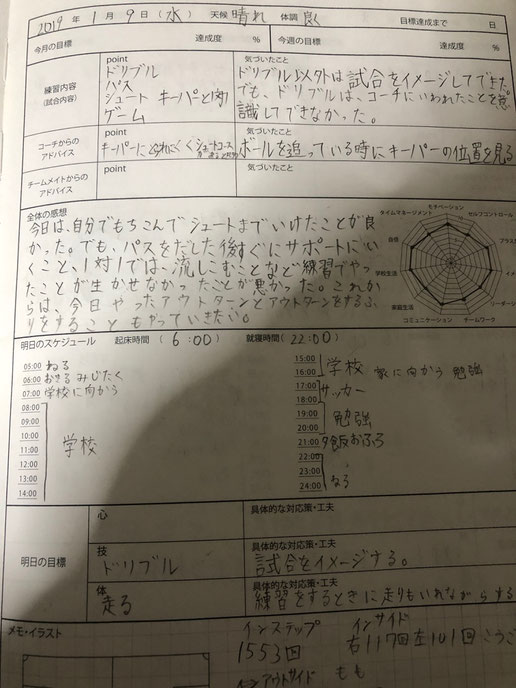 2019 年 1 月 9 日 (水) 天候 晴れ 体調 良く 目標達成まで 日
今月の目標 達成度 % 今週の目標 達成度 %
練習内容
(試合内容)
point
ドリブル
パス
シュート キーパーと1対1
ゲーム
気づいたこと
ドリブル以外は試合をイメージしてできた。
でも、ドリブルは、コーチにいわれたことを意
識してできなかった。
コーチからの
アドバイス
point
キーパーにとられにくくシュートコース
気づいたこと
ボールを追っている時にキーパーの位置を見る
チームメイトからの
アドバイス
point
気づいたこと
全体の感想
今日は、自分でもちこんでシュートまでいけたことが良
かった。でも、パスをだした後すぐにサポートにい
くこと、1対1では、流しこむことなど練習でやっ
たことが生かせなかったことが悪かった。これか
らは、今日やったアウトターンとアウトターンをするふ
りをすることもやっていきたい。
モチベーション
タイムマネージメント
セルフコントロール
自信
プラス
学校生活
イメ
家庭生活
リーダー
コミュニケーション
チームワーク
明日のスケジュール 起床時間 ( 6:00 ) 就寝時間 ( 22:00 )
05:00 ねる
06:00 おきる みじたく
07:00 学校に向かう
08:00
09:00
10:00
11:00 学校
12:00
13:00
14:00
15:00
16:00 学校 家に向かう 勉強
17:00
18:00 サッカー
19:00
20:00 勉強
21:00 夕飯おふろ
22:00
23:00
24:00 ねる
明日の目標
心
具体的な対応策・工夫
技
ドリブル
具体的な対応策・工夫
試合をイメージする。
体
走る
具体的な対応策・工夫
練習をするときに走りもいれながらする
メモ・イラスト
インステップ
1553回
インサイド
右117回左101回こうご
アウトサイド もも